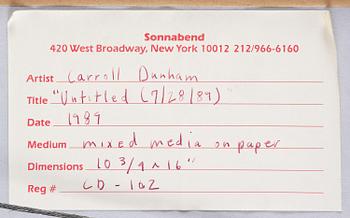 Sonnabend
420 West Broadway, New York 10012 212/966-6160
Artist Carroll Dunham
Title "Untitled (7/28/89)"
Date 1989
Medium mixed media on paper
Dimensions 10 3/4 x 16"
Reg # CD - 102